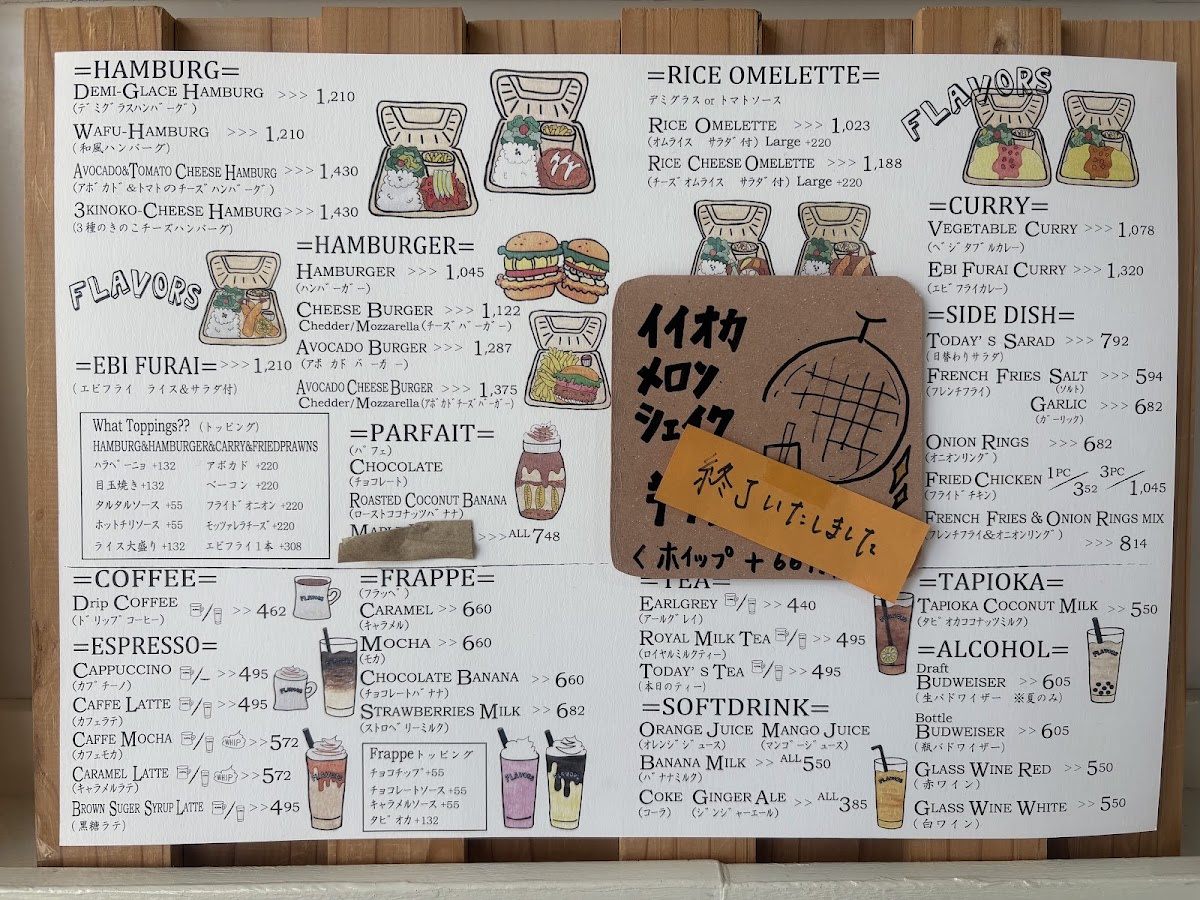 =HAMBURG=
DEMI-GLACE HAMBURG >>> 1,210
(デミグラスハンバーグ)
WAFU-HAMBURG >>> 1,210
(和風ハンバーグ)
AVOCADO&TOMATO CHEESE HAMBURG >>> 1,430
(アボカド&トマトのチーズハンバーグ)
3KINOKO-CHEESE HAMBURG >>> 1,430
(3種のきのこチーズハンバーグ)
FLAVORS
=EBI FURAI= >>> 1,210
(エビフライ ライス&サラダ付)
=HAMBURGER=
HAMBURGER >>> 1,045
(ハンバーガー)
CHEESE BURGER >>> 1,122
Chedder/Mozzarella (チーズバーガー)
AVOCADO BURGER >>> 1,287
(アボカドバーガー)
AVOCADO CHEESE BURGER >>> 1,375
Chedder/Mozzarella (アボカドチーズバーガー)
What Toppings?? (トッピング)
HAMBURG&HAMBURGER&CARRY&FRIEDPRAWNS
ハラペーニョ +132 アボカド +220
目玉焼き +132 ベーコン +220
タルタルソース +55 フライドオニオン +220
ホットチリソース +55 モッツァレラチーズ +220
ライス大盛り +132 エビフライ1本 +308
=PARFAIT=
(パフェ)
CHOCOLATE
(チョコレート)
ROASTED COCONUT BANANA
(ローストココナッツバナナ)
>>> ALL 748
=RICE OMELETTE=
デミグラス or トマトソース
RICE OMELETTE >>> 1,023
(オムライス サラダ付) Large +220
RICE CHEESE OMELETTE >>> 1,188
(チーズオムライス サラダ付) Large +220
FLAVORS
イイオカ
メロン
シェイク
終了いたしました
くホイップ +66
=CURRY=
VEGETABLE CURRY >>> 1,078
(ベジタブルカレー)
EBI FURAI CURRY >>> 1,320
(エビフライカレー)
=SIDE DISH=
TODAY'S SARAD >>> 792
(日替わりサラダ)
FRENCH FRIES SALT >>> 594
(フレンチフライ) (ソルト)
GARLIC >>> 682
(ガーリック)
ONION RINGS >>> 682
(オニオンリング)
FRIED CHICKEN 1PC/352 3PC/1,045
(フライドチキン)
FRENCH FRIES & ONION RINGS MIX
(フレンチフライ&オニオンリング)
>>> 814
=COFFEE=
DRIP COFFEE >> 462
(ドリップコーヒー)
=ESPRESSO=
CAPPUCCINO >> 495
(カプチーノ)
CAFFE LATTE >> 495
(カフェラテ)
CAFFE MOCHA WHIP >> 572
(カフェモカ)
CARAMEL LATTE WHIP >> 572
(キャラメルラテ)
BROWN SUGER SYRUP LATTE >> 495
(黒糖ラテ)
=FRAPPE=
(フラッペ)
CARAMEL >> 660
(キャラメル)
MOCHA >> 660
(モカ)
CHOCOLATE BANANA >> 660
(チョコレートバナナ)
STRAWBERRIES MILK >> 682
(ストロベリーミルク)
Frappeトッピング
チョコチップ +55
チョコレートソース +55
キャラメルソース +55
タピオカ +132
=TEA=
EARLGREY >> 440
(アールグレイ)
ROYAL MILK TEA >> 495
(ロイヤルミルクティー)
TODAY'S TEA >> 495
(本日のティー)
=SOFTDRINK=
ORANGE JUICE MANGO JUICE
(オレンジジュース) (マンゴージュース)
BANANA MILK >> ALL 550
(バナナミルク)
COKE GINGER ALE >> ALL 385
(コーラ) (ジンジャーエール)
=TAPIOKA=
TAPIOKA COCONUT MILK >> 550
(タピオカココナッツミルク)
=ALCOHOL=
Draft
BUDWEISER >> 605
(生バドワイザー ※夏のみ)
Bottle
BUDWEISER >> 605
(瓶バドワイザー)
GLASS WINE RED >> 550
(赤ワイン)
GLASS WINE WHITE >> 550
(白ワイン)